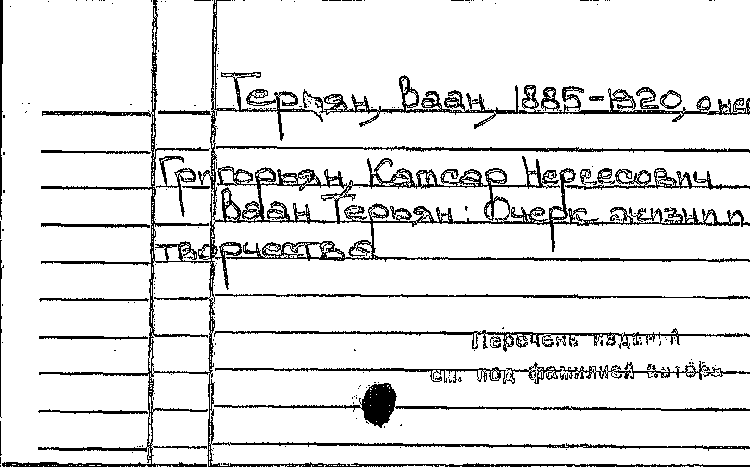 Терьян, Ваан, 1885-1920, о не
Григорьян, Камсар Нерсесович
Ваан Терьян: Очерк жизни и
творчества
Перечень изданий
см. под фамилией автора